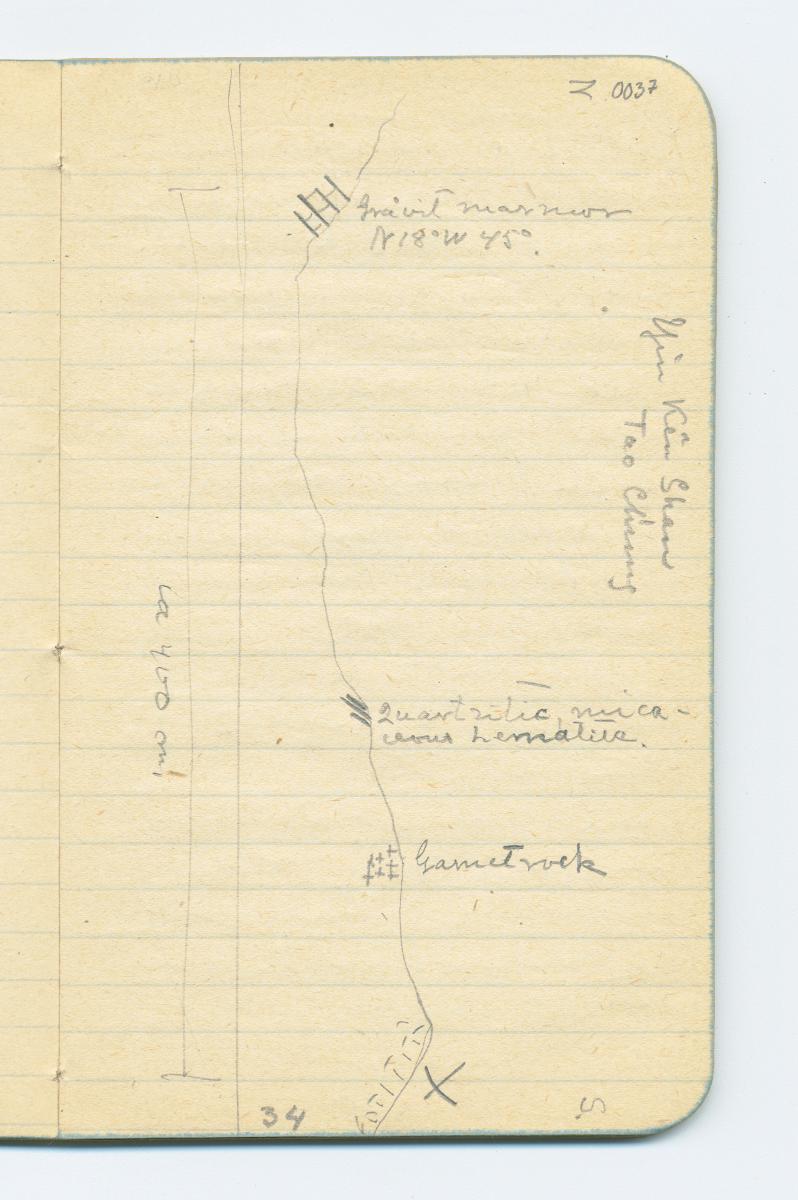 N 0037
Gråvit marmor
N 18° W 45°.
Yin Kên Shan
Tao Ch'ung
ca 400 m
Quartzitic, mica-
ceous hematite.
Garnetrock
34
S.